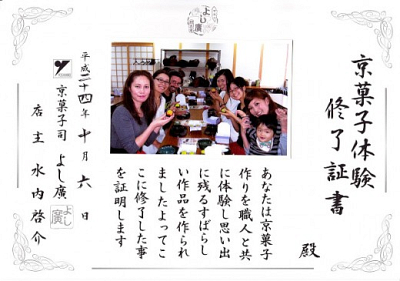 京菓子体験
修了証書
殿
あなたは京菓子
作りを職人と共
に体験し思い出
に残るすばらし
い作品を作られ
ましたよってこ
こに修了した事
を証明します
平成二十四年十月六日
京菓子司 よし廣
店主 水内啓介
よし廣
よし廣